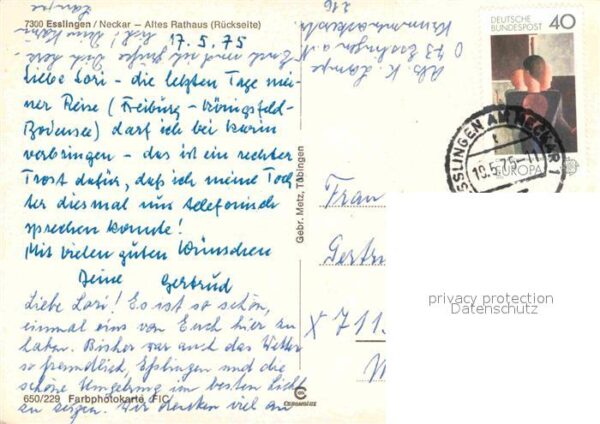 7300 Esslingen / Neckar – Altes Rathaus (Rückseite)
17.5.75
Liebe Lori – die letzten Tage mei-
ner Reise (Freiburg – Königsfeld-
Bodensee) darf ich bei Karin
verbringen – das ist ein rechter
Trost dafür, daß ich meine Toch-
ter diesmal nur telefonisch
sprechen konnte!
Mit vielen guten Wünschen
Deine Gertrud
Liebe Lori! Es ist so schön,
einmal eins von Euch hier zu
haben. Bisher war auch das Wetter
so freundlich, Esslingen und die
schöne Umgebung im besten Licht
zu zeigen. Wir denken viel an
Euch und ich grüße Dich sehr
lieb! Deine Karin
Lampe
650/229 Farbphotokarte FIC
Gebr. Metz, Tübingen
CEKANDEKE
Abs. K. Lampe
D 73 Esslingen a.N.
216
DEUTSCHE
BUNDESPOST
40
EUROPA
ESSLINGEN AM NECKAR 1
19.5.75-11
Frau
Gertr
X 711
privacy protection
Datenschutz